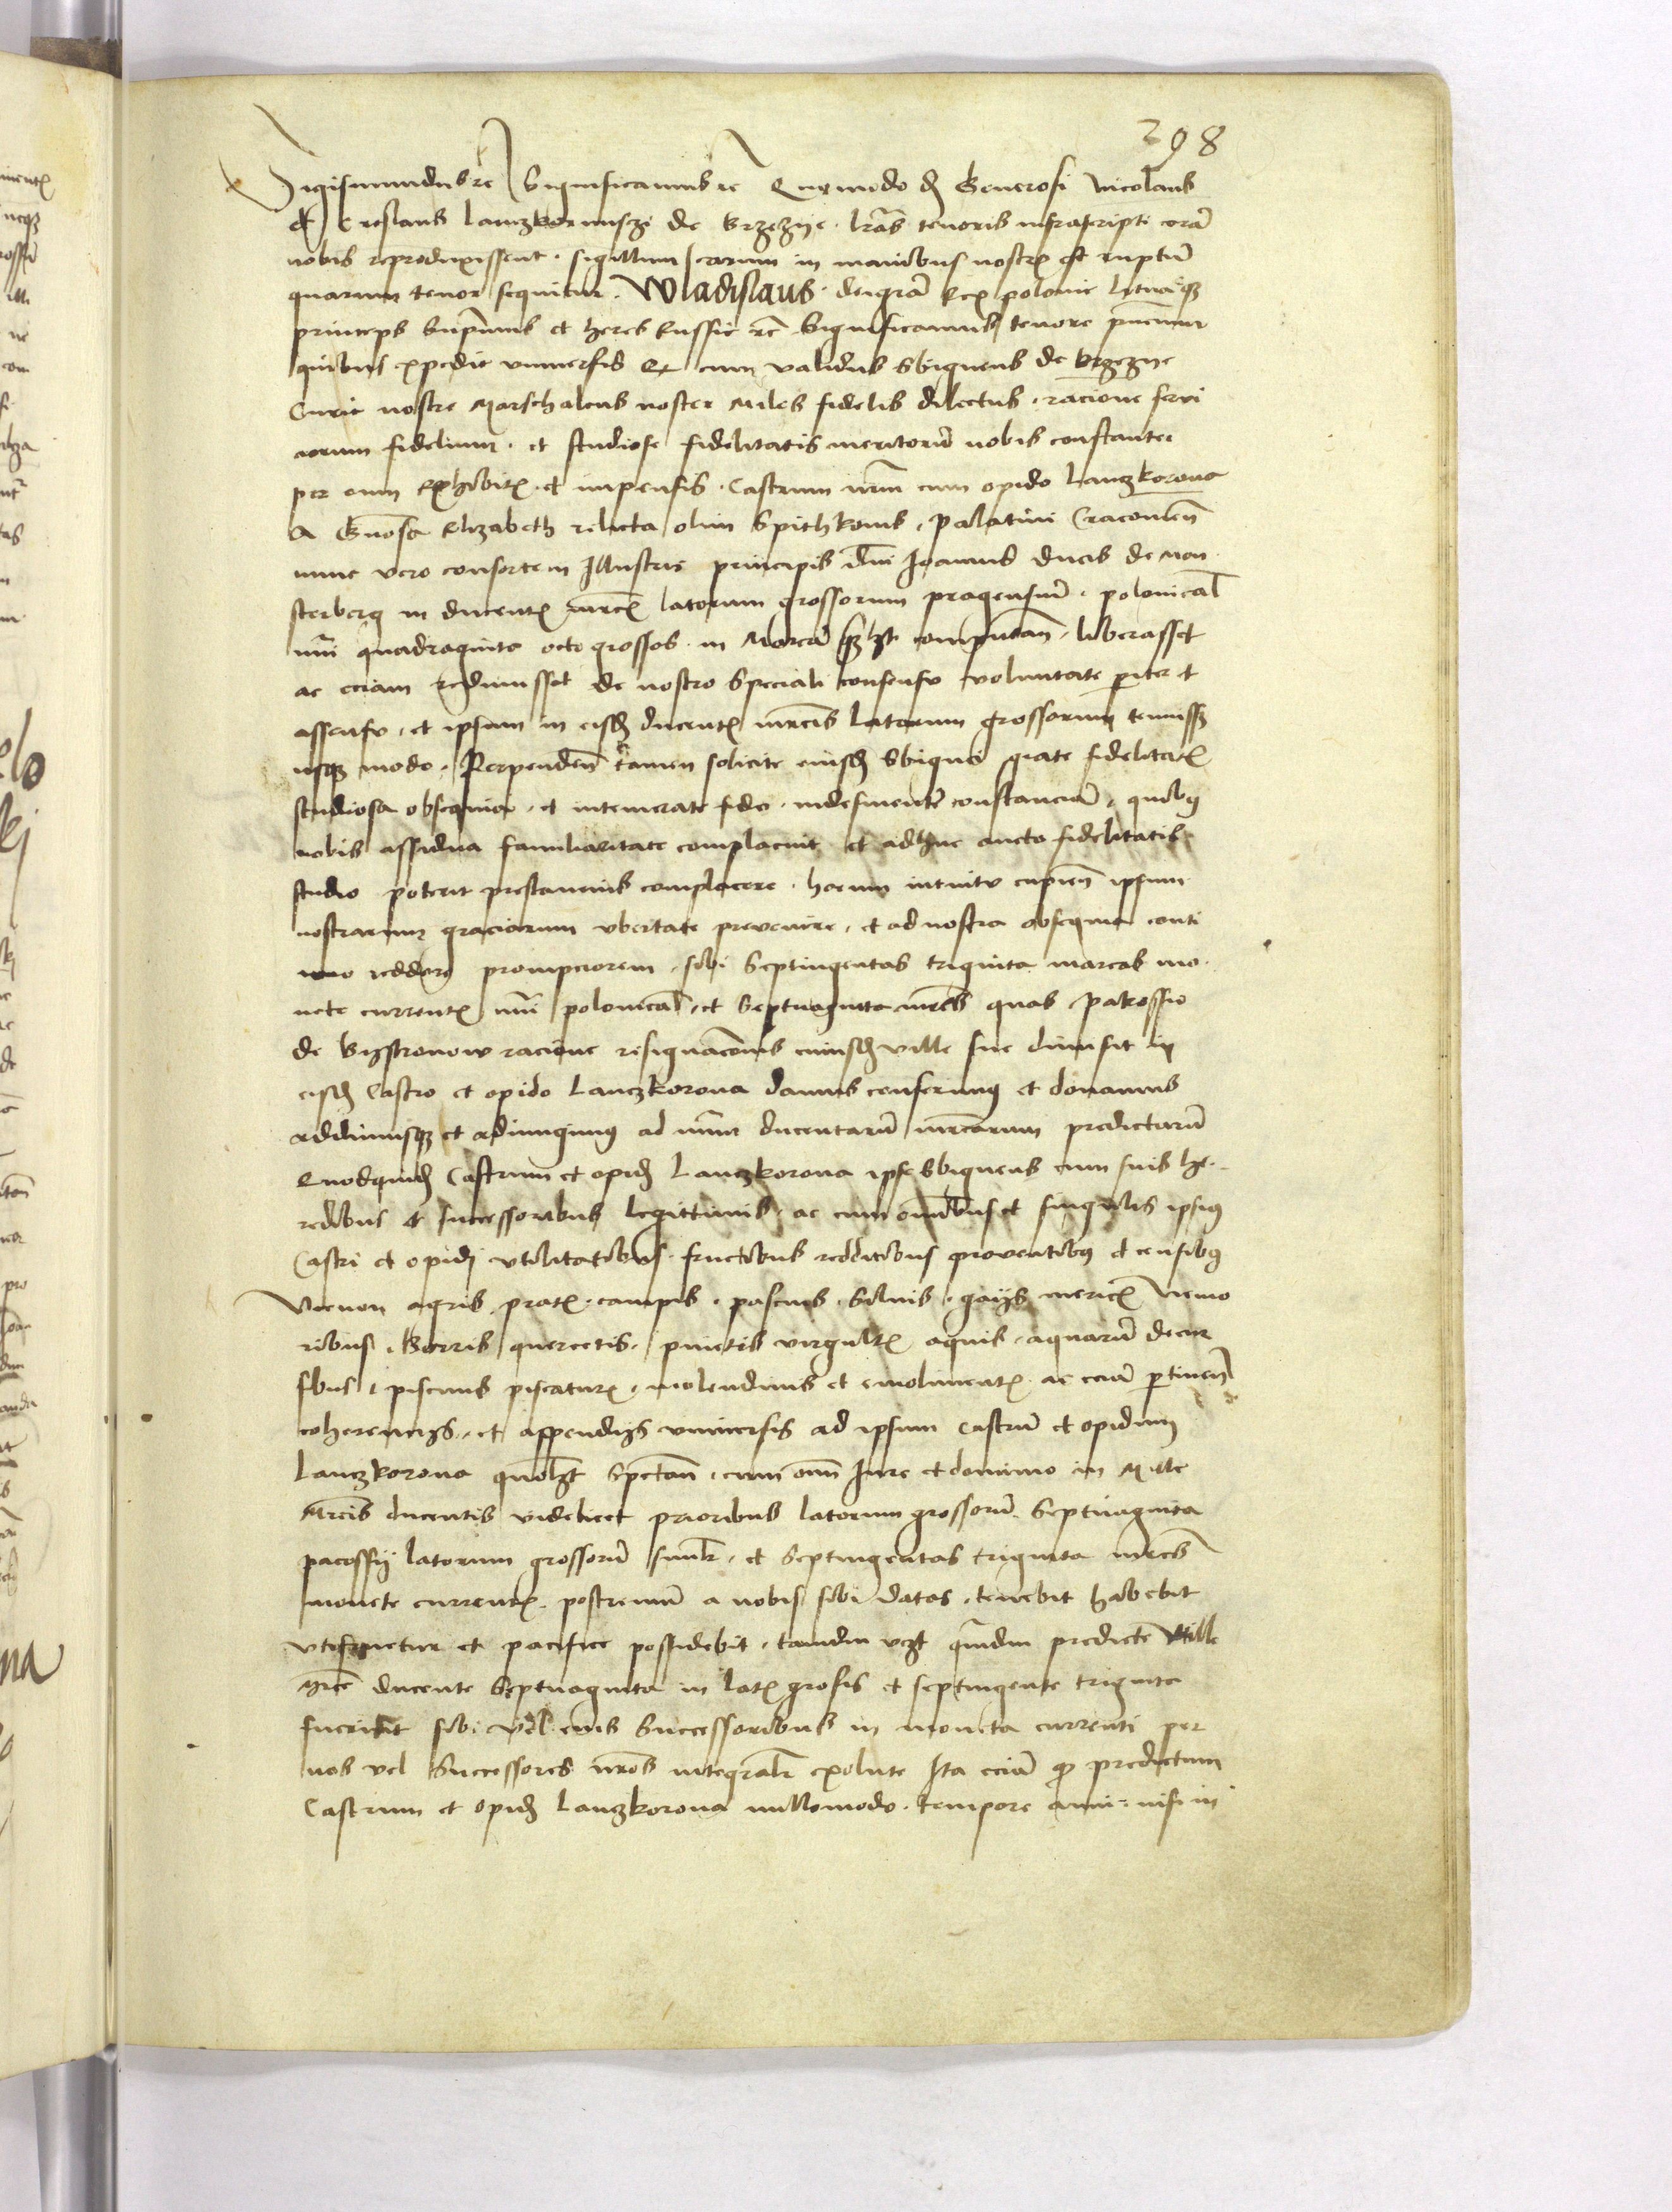 298
Sigismundus rc Significamus rc Quomodo dz Generosi Nicolaus
et Creslaus Lanczkorunszi de Brzezye. lras tenoris infrascripti cora
nobis reproduxissent. sigillum earum in manibus nostrx est ruptu
quarum tenor sequitur. Wladislaus. dei gra Rex polonie litwaieqz
princeps supmus et heres Russie rc Significamus tenore pncium
quibus expedit vniversis Qx cum validus Sbigneus de Brzezye
Curie nostre Marschalcus noster Miles fidelis dilectus. racione servi
ciorum fidelium. et studiose fidelitatis meritoru nobis constanter
per eum exhibitx. et impensis. Castrum nrm cum opido Lanczkorona
A Gnosa Elizabeth relicta olim Spithkonis. Palatini Cracovien
nunc vero consortem Illustris principis dni Joannis ducis de Mon
sterberg in ducentx mrcx latorum grossorum pragensium. polonical
nui quadraginta octo grossos. in Marca qzlzt computan. liberasset
ac eciam redimisset de nostro Speciali consensu voluntate piter et
assensu. et ipsum in eisdz ducentx mrcis latorum grossorum tenuissz
usqz modo. Perpenden tamen solicite eiusdz Sbignei grate fidelitatx
studiosa obsequia. et intemerate fidei. indesinente constancia. quibus
nobis assidua familiaritate complacuit et adhuc aucto fidelitatis
studio poterit prestancius complacere. horum intuitu cupien ipsum
nostrarum graciarum vbertate prevenire. et ad nostra obsequia conti
nuo reddere prompciorem. sibi Septingentas triginta marcas mo
nete currentx nui polonical. et Septuaginta mrcs quas Pakossio
de Bystronow racione resignacois cuiusdz ville sue dimisit in
eisdz Castro et opido Lanczkorona damus conferimus et donamus
addimusqz et adiungimus ad numu ducentaru mrcarum predictaru
Quodquidz Castrum et opidz Lanczkorona ipse Sbigneus cum suis he
redibus et successoribus legittimis. ac cum omnibus et singulis ipsius
Castri et opidi vtilitatibus. fructibus redditibus proventibus et censibus
Necnon agris pratx. campis. pascuis. Silvis. gayis mericx Nemo
ribus. Borris quercetis. pinetis virgultx aquis. aquaru decur
sibus. piscinis piscaturx. molendinis et emolimentx ac ecia ptinen
coherencijs. et appendijs vniversis ad ipsum Castru et opidum
Lanczkorona quolzt Spectan. cum omi Jure et dominio in Mille
Mrcis ducentis videlicet prioribus latorum grossoru Septuaginta
pacossij latorum grossoru simlr. et Septingentas triginta mrcs
monete currentx. postremu a nobis sibi datas. tenebit habebit
vtifruetur et pacifice possidebit. tamdiu vzt qmdiu predicte Mille
Mrce ducente Septuaginta in latx grosis et septingente triginta
fuerint sibi vel eius Successoribus in moneta currenti per
nos vel Successores nros integralr exolute Ita ecia qz predictum
Castrum et opidz Lanczkorona nullomodo. tempore anni. nisi in